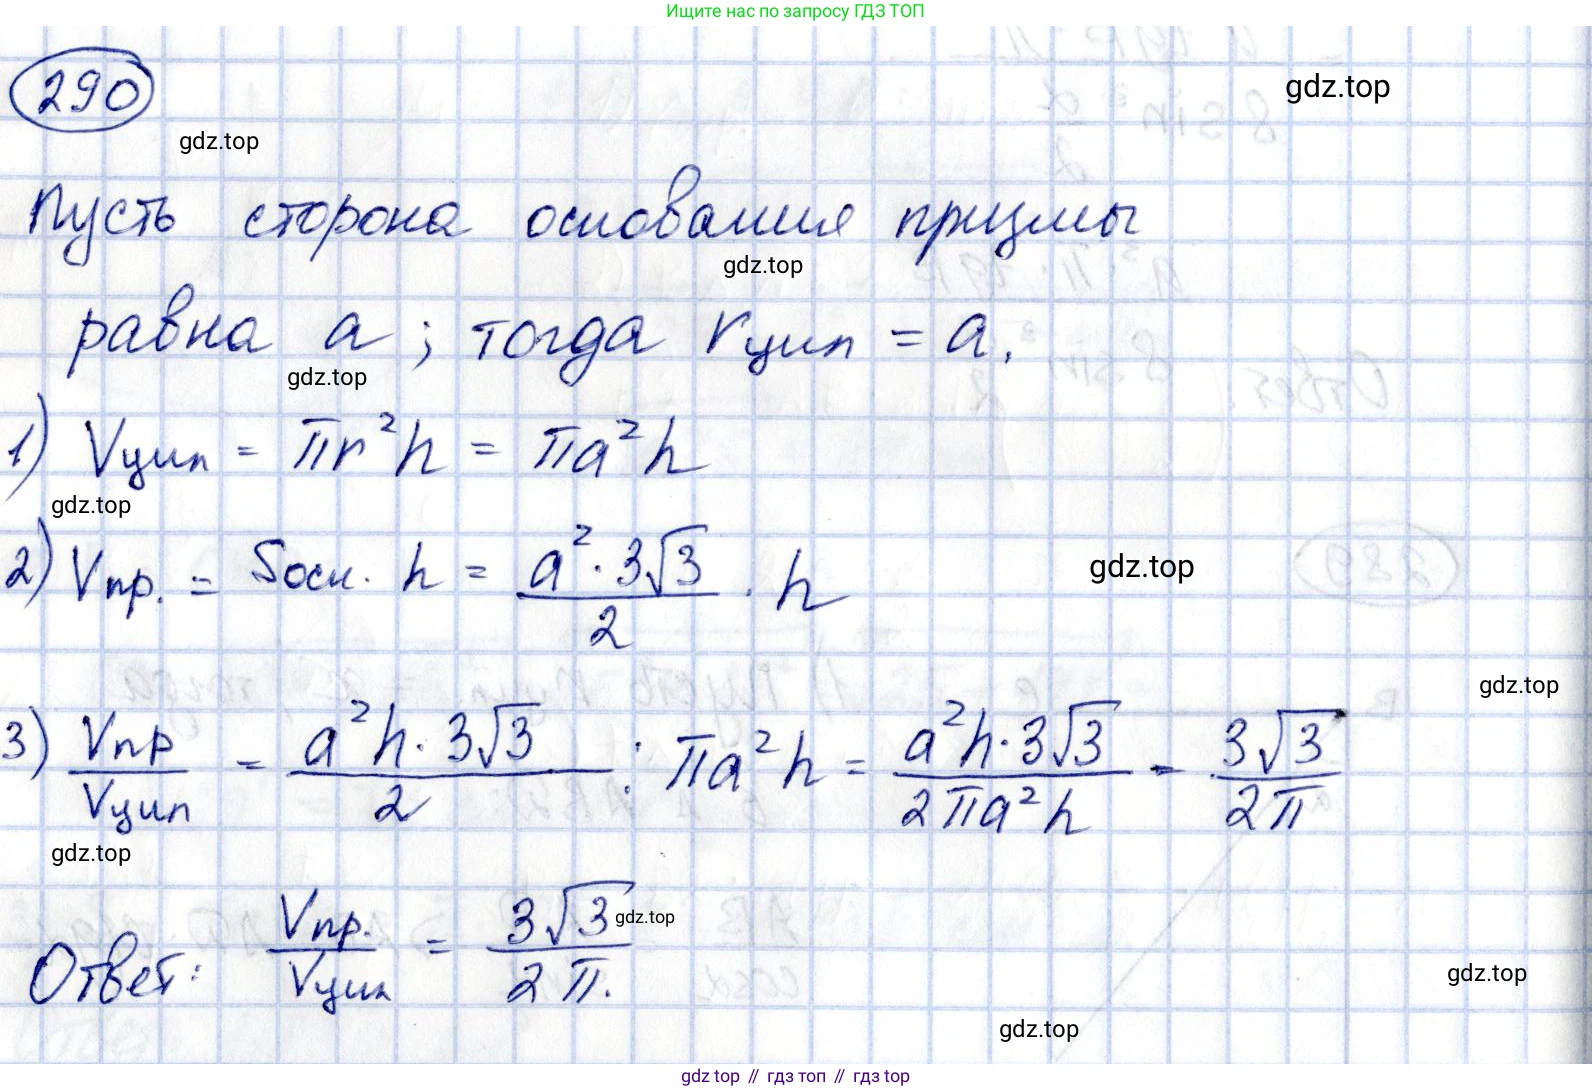 Ищите нас по запросу ГДЗ ТОП
290
gdz.top
gdz.top
Пусть сторона основания призмы
gdz.top
равна a; тогда rцил = a.
gdz.top
1) Vцил = πr²h = πa²h
gdz.top
2) Vпр. = Sосн. h = (a² · 3√3)/2 · h
gdz.top
gdz.top
3) Vпр/Vцил = (a²h · 3√3)/2 : πa²h = (a²h · 3√3)/(2πa²h) = 3√3/2π
gdz.top
Ответ: Vпр./Vцил = 3√3/2π.
gdz.top
gdz.top
gdz.top
gdz.top // гдз топ // гдз.top